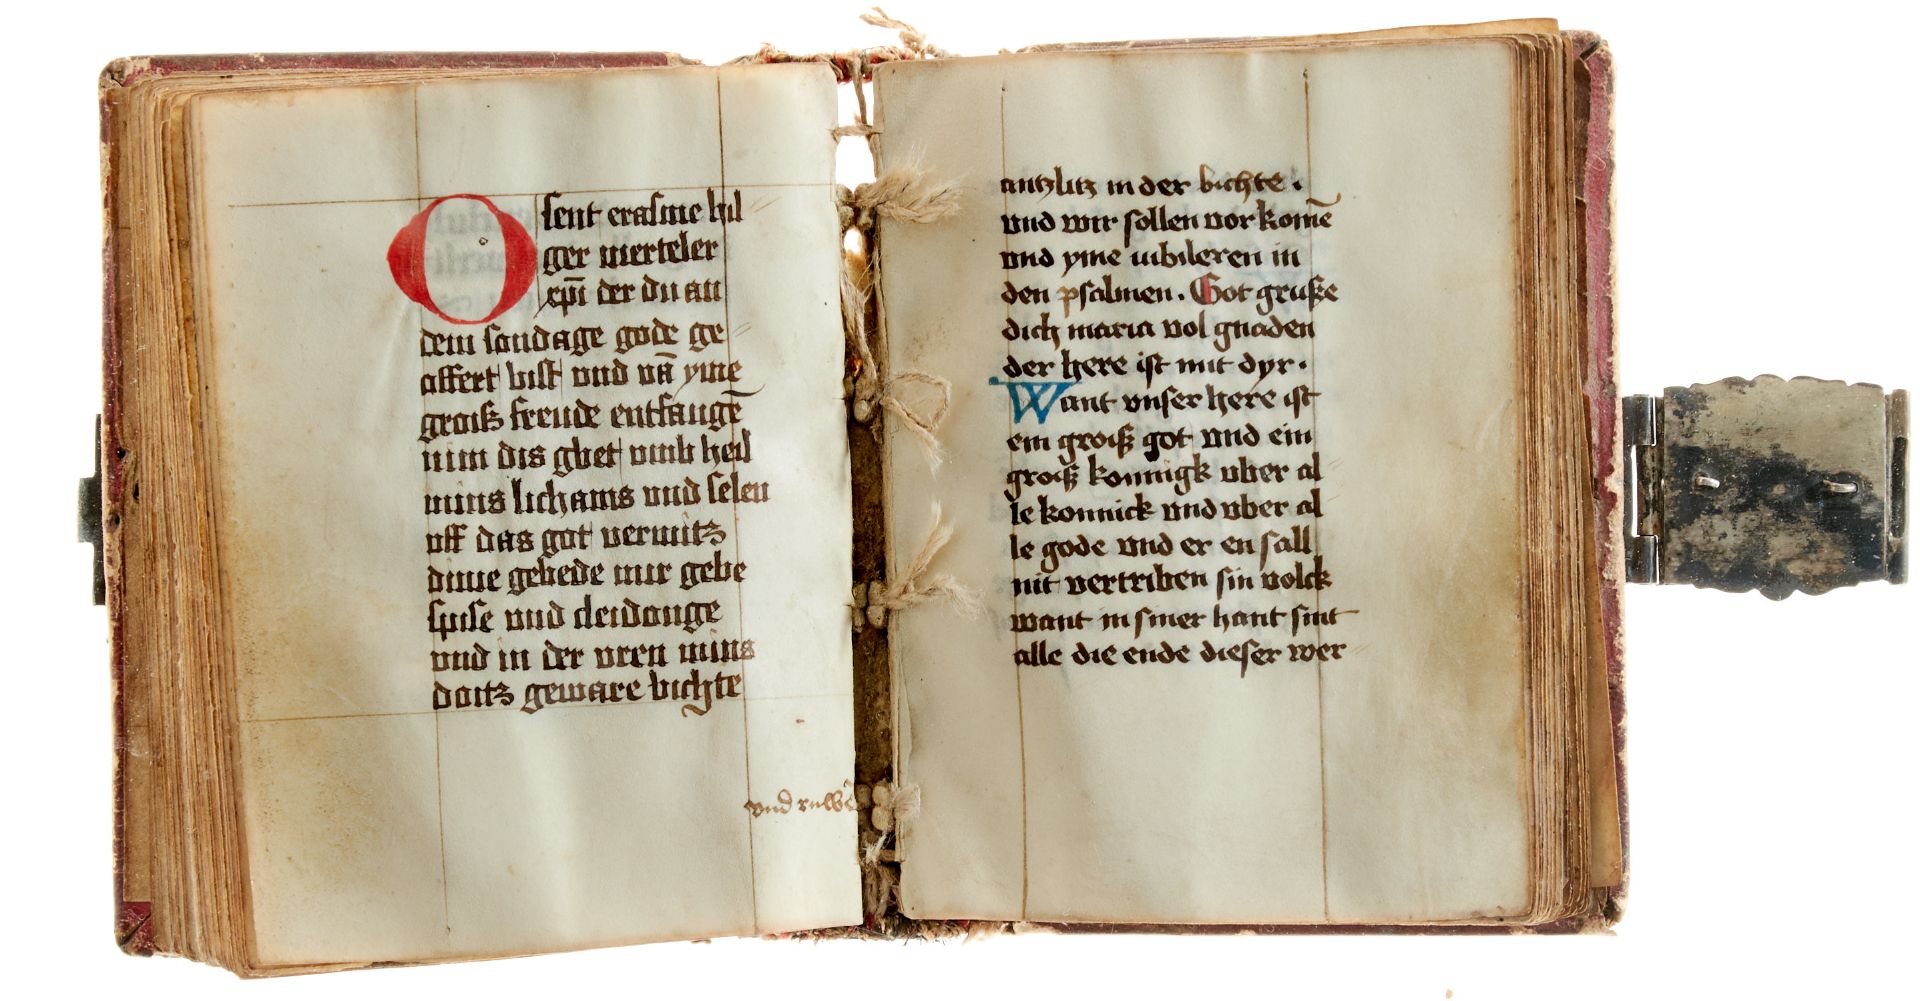 O sent erasme hil
ger merteler
xp̄i der du an
dem sondage gode ge
offert bist vnd vā yme
groiß freude entfangē
nim dis gbet vmb heil
mins lichams vnd selen
vff das got vermitz
dine gebede mir gebe
spise vnd cleidonge
vnd in der vren mins
doitz geware bichte
vnd ruwē
antzlitz in der bichte.
vnd wir sollen vor komē
vnd yme iubileren in
den psalmen. Got gruße
dich maria vol gnaden
der here ist mit dyr.
Want vnser here ist
ein groiß got vnd ein
groiß konnigk vber al
le konnick vnd vber al
le gode vnd er en sall
nit vertriben sin volck
want in siner hant sint
alle die ende dieser wer